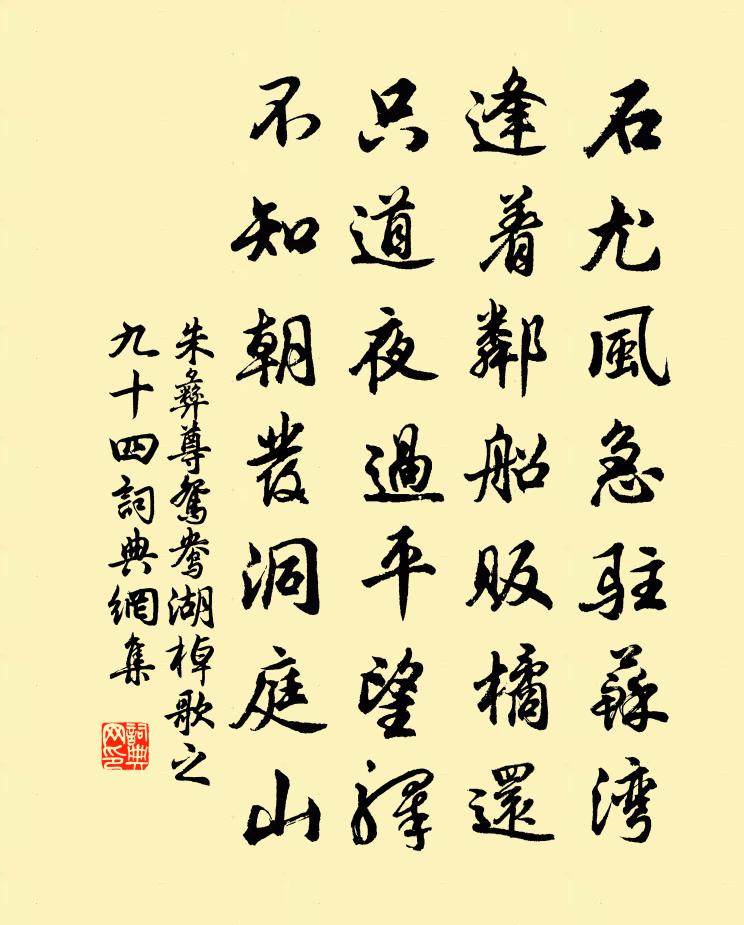 石尤風急駐蘇灣
逢着鄰船販橘還
只道夜過平望驛
不知朝發洞庭山
朱彝尊鴛鴦湖棹歌之
九十四詞典網集
詞典
网印